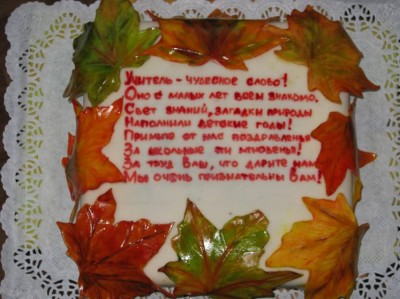 Учитель - чудесное слово!
Оно с малых лет всем знакомо.
Свет знаний, загадки природы
Наполнили детские годы!
Примите от нас поздравленья
За школьные эти мгновенья!
За труд Ваш, что дарите нам
Мы очень признательны Вам!